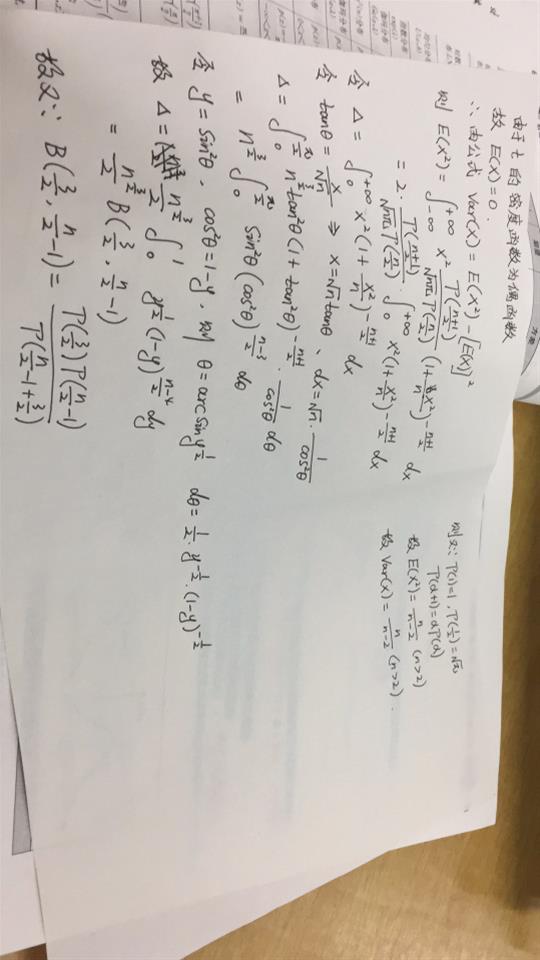 由于 t 的密度函数为偶函数
故 E(X)=0.
∴ 由公式 Var(X) = E(X²) - [E(X)]²
则 E(X²) = ∫_{-∞}^{+∞} x² Γ((n+1)/2) / (√(nπ) Γ(n/2)) (1 + x²/n)^{-(n+1)/2} dx
= 2 · Γ((n+1)/2) / (√(nπ) Γ(n/2)) · ∫_0^{+∞} x² (1 + x²/n)^{-(n+1)/2} dx
令 Δ = ∫_0^{+∞} x² (1 + x²/n)^{-(n+1)/2} dx
令 tanθ = x/√n ⇒ x = √n tanθ、dx = √n · 1/cos²θ
Δ = ∫_0^{π/2} n^{3/2} tan²θ (1 + tan²θ)^{-(n+1)/2} · 1/cos²θ dθ
= n^{3/2} ∫_0^{π/2} sin²θ (cos²θ)^{(n-3)/2} dθ
令 y = sin²θ、cos²θ = 1-y、则 θ = arcsin y^{1/2} dθ = 1/2 · y^{-1/2} · (1-y)^{-1/2}
故 Δ = n^{3/2}/2 ∫_0^1 y^{1/2} (1-y)^{(n-4)/2} dy
= n^{3/2}/2 B(3/2, n/2 - 1)
故又∵ B(3/2, n/2 - 1) = Γ(3/2) Γ(n/2 - 1) / Γ(n/2 - 1 + 3/2)
则又∵ Γ(1)=1、Γ(1/2)=√π
Γ(α+1) = αΓ(α)
故 E(X²) = n/(n-2) (n>2)
故 Var(X) = n/(n-2) (n>2).